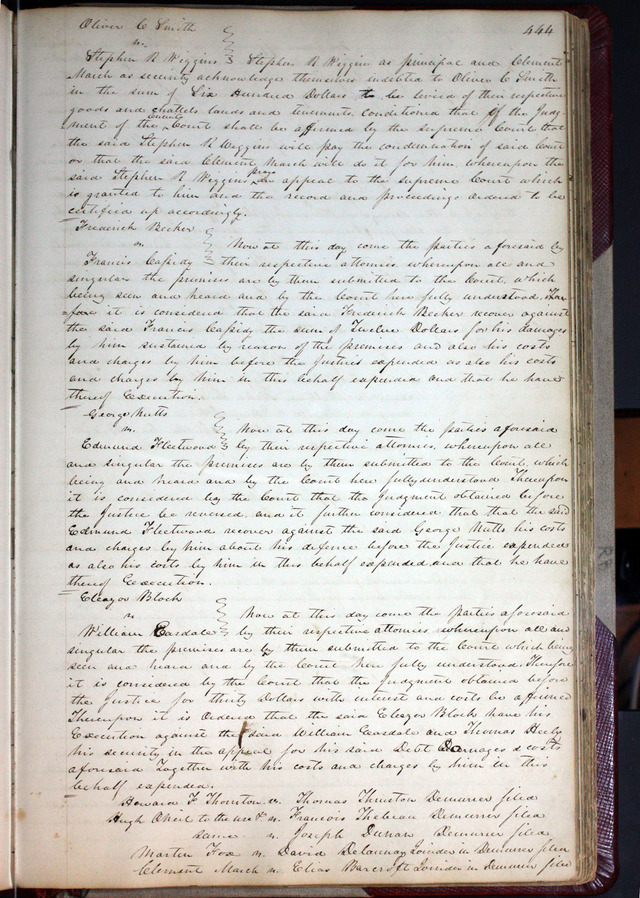 Oliver C Smith 444
vs.
Stephen R Wiggins Stephen R Wiggins as principal and Clement
March as security acknowledge themselves indebted to Oliver C Smith
in the sum of Six Hundred Dollars to be levied of their respective
goods and chattels lands and tenements, conditioned that if the Judg-
ment of the County Court shall be affirmed by the Supreme Court that
the said Stephen R Wiggins will pay the condemnation of said Court
or that the said Clement March will do it for him, whereupon the
said Stephen R Wiggins prays an appeal to the Supreme Court which
is granted to him and the record and proceedings ordered to be
certified up accordingly.
Frederick Becker
vs. Now at this day come the parties aforesaid by
Francis Cassidy their respective attornies, whereupon all and
singular the premises are by them submitted to the Court, which
being seen and heard and by the Court here fully understood, There-
fore it is considered that the said Frederick Becker recover against
the said Francis Cassidy the sum of Twelve Dollars for his damages
by him sustained by reason of the premises and also his costs
and charges by him before the Justice expended as also his costs
and charges by him in this behalf expended and that he have
thereof Execution.
George Nutts
vs. Now at this day come the parties aforesaid
Edmund Fleetwood by their respective attornies, whereupon all
and singular the premises are by them submitted to the Court, which
being and heard and by the Court here fully understood Thereupon
it is considered by the Court that the Judgment obtained before
the Justice be reversed, and it further considered that that the said
Edmund Fleetwood recover against the said George Nutts his costs
and charges by him about his defence before the Justice expended
as also his costs by him in this behalf expended and that he have
thereof Execution.
Eleazor Block
vs Now at this day come the parties aforesaid
William Easdale by their respective attornies whereupon all and
singular the premises are by them submitted to the Court which being
seen and heard and by the Court here fully understood. Therefore
it is considered by the Court that the Judgment obtained before
the Justice for thirty Dollars with interest and costs be affirmed
Thereupon it is ordered that the said Eleazor Block have his
Execution against the said William Easdale and Thomas
his security in the appeal for his said Debt Damages & costs
aforesaid Together with his costs and charges by him in this
behalf expended.
Howard F Thornton vs. Thomas Thruston Demurrer filed
Hugh ONeil to the use vs. Francois Demurrer filed
same vs Joseph Dunan Demurrer filed
Martin Fox vs. David Delaunay Joinder in Demurrer filed
Clement March vs. Elias Barcroft Joinder in Demurrer filed